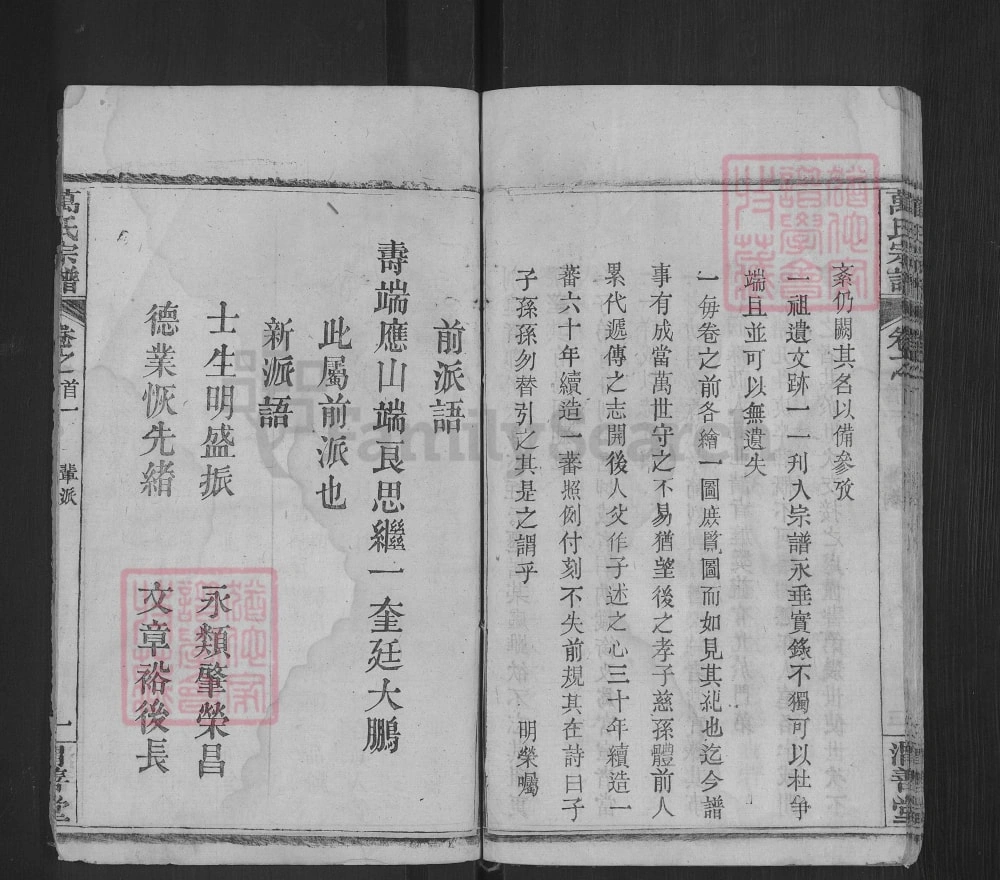 萬氏宗譜
紊仍闕其名以備參攷
一祖遺文跡一一刋入宗譜永垂實錄不獨可以杜爭
端且並可以無遺失
一每卷之前各繪一圖庶覽圖而如見其祀也迄今譜
事有成當萬世守之不易猶望後之孝子慈孫體前人
累代遞傳之志開後人父作子述之心三十年續造一
蕃六十年續造一蕃照例付刻不失前規其在詩曰子
子孫孫勿替引之其是之謂乎
明榮囑
前派語
壽端應山端艮思繼一奎廷大鵬
此屬前派也
新派語
士生明盛振 永類肇榮昌
德業恢先緒 文章裕後長
萬氏宗譜 卷之首一 輩派 一 善堂
FamilySearch